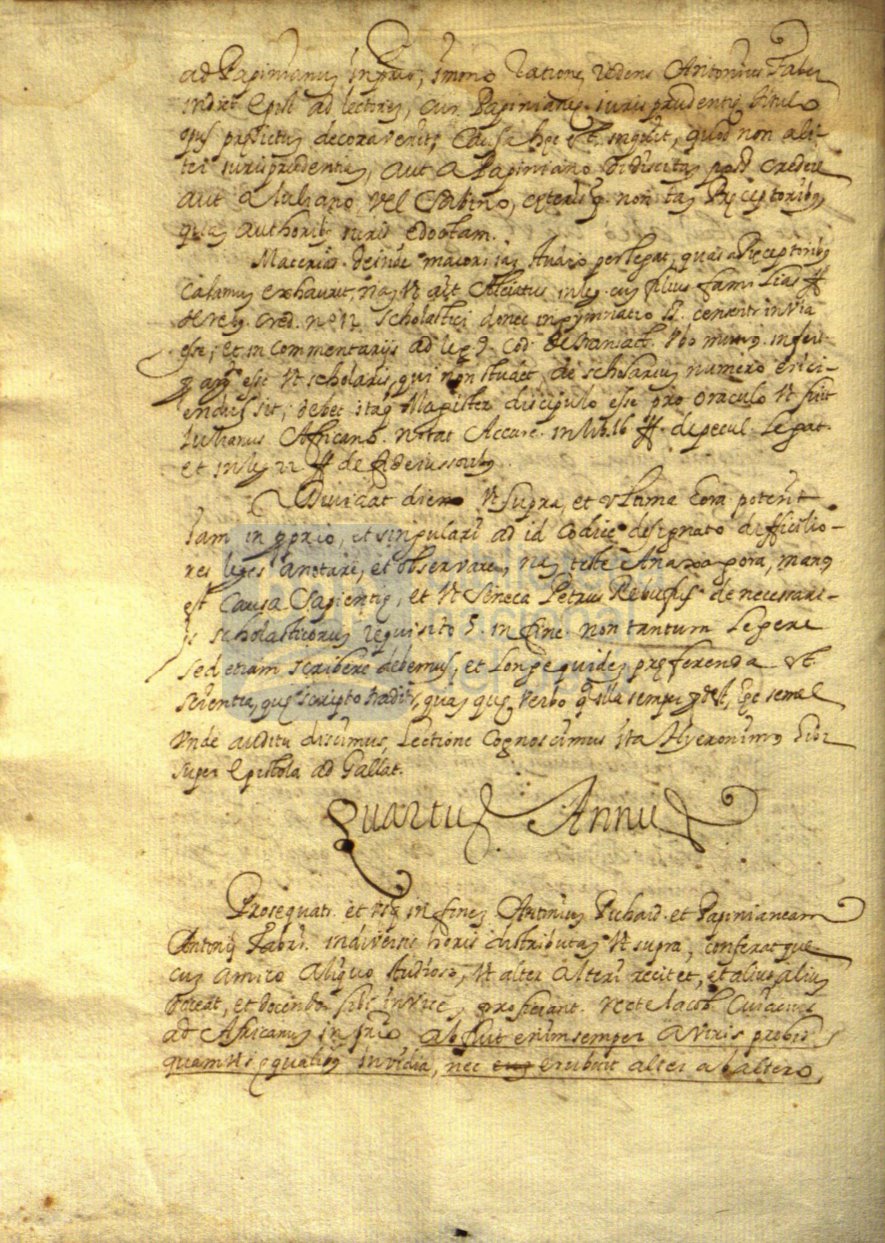 ad Papinianum in prio; imono ratione redens Antonius Faber
in dict Epist ad lectorem, cur Papinianeę iurisprudentię titulo
opus prędictum decoraverit; Causa hęc est inquit, quod non ali-
ter iurisprudentiam, aut a Papiniano didiscitam posse credere
aut a Iuliano, vel Sabino, cęterisq. non tam Pręceptoribus
quam authoribus iuris edoctam.
Materias deinde maiori iam studio perlegat, quas a Pręceptoribus
Calamus exhaurit, nam Vt ait Alciatus in leg. cum filius familias ff
de reb. cred. nº 12 scholastici donec in gymnatio st. censentur in via
esse; et in commentarijs ad leg 9. Cod de transact.
esse Vt scholaris, qui non studet de scholarium numero erici-
endus sit; debet itaq. Magister discipulo esse pro oraculo Vt fuit
Iulianus Africano. notat Accurs. in lib. 16 ff. de pecul. legat.
et in leg 22 ff de fideiussorib.
Dividat diem Vt supra, et vltima hora poterit
iam in proprio, et singulari ad id Codice designato difficilio-
res leges anotare, et observare, nam teste Anaxagora, manus
est Causa Sapientię, et Vt Seneca Petrus Rebuffus de necessari-
js scholasticorum requisito 5. in fine. non tantum legere
sed etiam scribere debemus, et longe quidem pręferenda est
scientia, quę scripto traditur, quam quę verbo q. illa semper
Vnde auditu discimus, lectione Cognoscimus ita Hyeronimus
super Epistola ad Gallat.
Quartus Annus
Prosequatr. et vsq in finem Antonium Pichard. et Papinianeam
Antonij Fabri. in diversis horis distributam Vt supra, conferatque
cum amico aliquo studioso, Vt alter alteri recitet, et alius alium
doceat, et docendo sibi invicem proficiant. recte Iacob. Cuiacius
ad Africanum in prio abfuit enim semper a viris probis
quamvis ęqualibus invidia, nec erubuit alter ab altero,